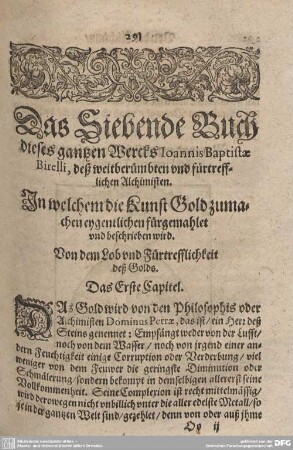 291
Das Siebende Buch
dieses gantzen Wercks Ioannis Baptistæ
Birelli, deß weitberümbten vnd fürtreff-
lichen Alchimisten.
In welchem die Kunst Gold zuma-
chen eygentlichen fürgemahlet
vnd beschrieben wird.
Von dem Lob vnd Fürtrefflichkeit
deß Golds.
Das Erste Capitel.
DAs Gold wird von den Philosophis oder
Alchimisten Dominus Petræ, das ist / ein Herr deß
Steins genennet; Empfängt weder von der Lufft /
noch von dem Wasser / noch von jrgend einer an-
dern Feuchtigkeit einige Corruption oder Verderbung / viel
weniger von dem Feuwer die geringste Diminution oder
Schmälerung / sondern bekompt in demselbigen allererst seine
Vollkommenheit. Seine Complexion ist recht mittelmässig /
wird derowegen nicht vnbillich vnter die aller edelste Metall / so
je in der gantzen Welt sind / gezehlet / denn von oder auß jhme
Oo ij